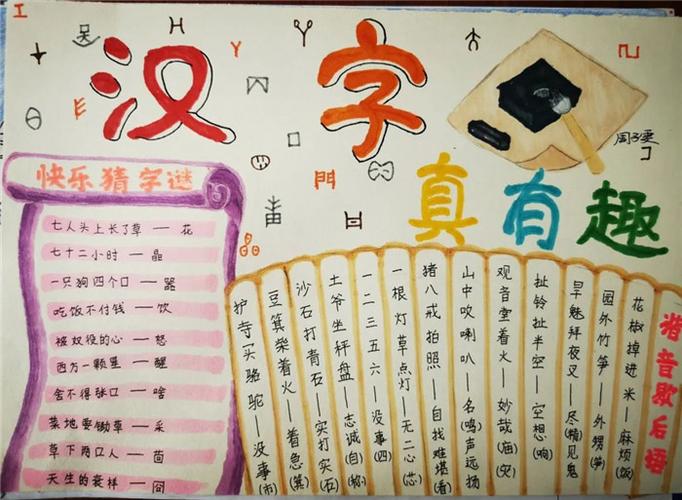 汉字
真有趣
快乐猜字谜
七人头上长了草 — 花
七十二小时 — 晶
一只狗四个口 — 器
吃饭不付钱 — 饮
被奴役的心 — 怒
西方一颗星 — 醒
舍不得张口 — 啥
菜地要锄草 — 采
草下两口人 — 茴
天生的 — 冏
谐音歇后语
花椒掉进米 — 麻烦(饭)
园外竹笋 — 外甥(笋)
旱魅拜夜叉 — 尽(精)见鬼
扯铃扯半空 — 空想(响)
观音堂着火 — 妙哉(庙灾)
山中吹喇叭 — 名(鸣)声远扬
猪八戒拍照 — 自找难堪(看)
一根灯草点灯 — 无二心(芯)
一二三五六 — 没事(四)
土爷坐秤盘 — 志诚(自称)
沙石打青石 — 实打实(石)
豆箕柴着火 — 着急(箕)
护寺一头骆驼 — 没事(市)